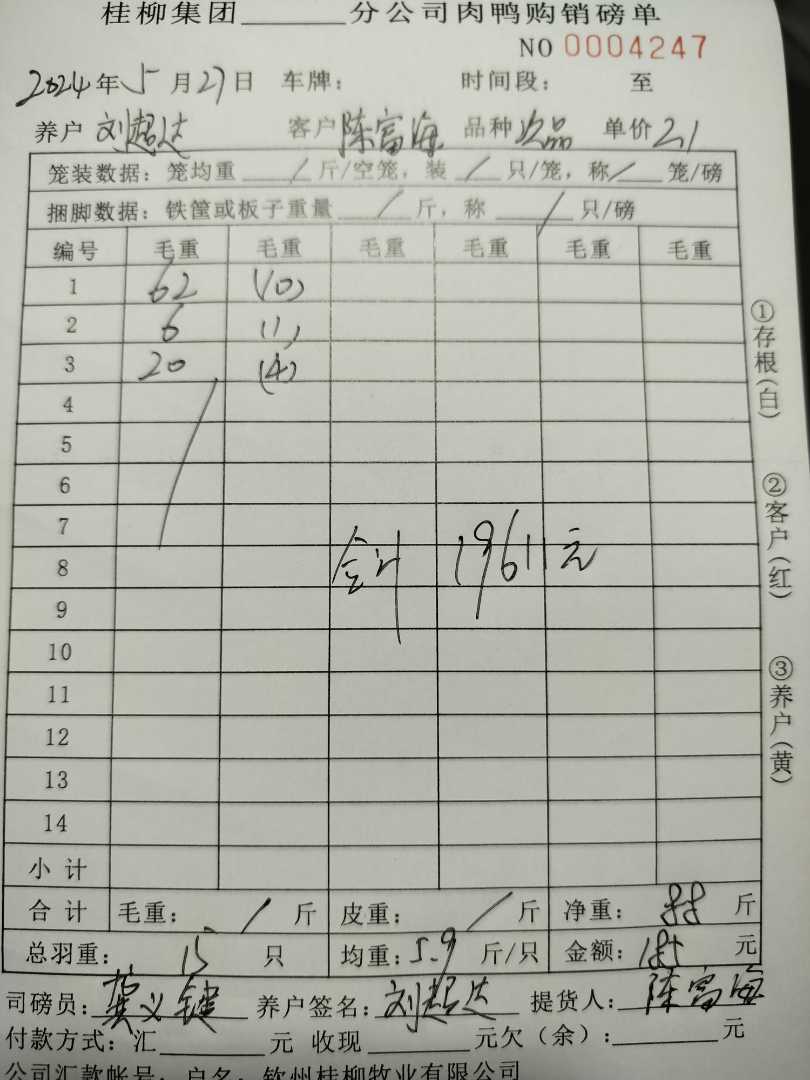 桂柳集团______分公司肉鸭购销磅单
NO 0004247
2024年5月27日 车牌: 时间段: 至
养户 刘超达 客户 陈富海 品种 次品 单价 2.1
笼装数据: 笼均重 / 斤/空笼, 装 / 只/笼, 称 / 笼/磅
捆脚数据: 铁筐或板子重量 / 斤, 称 / 只/磅
编号 毛重 毛重 毛重 毛重 毛重 毛重
1 62 (10)
2 6 (1)
3 20 (4)
4
5
6
7
8 合计 19611元
9
10
11
12
13
14
小计
合计 毛重: / 斤 皮重: / 斤 净重: 88 斤
总羽重: 15 只 均重: 5.9 斤/只 金额: 185 元
司磅员: 龚义键 养户签名: 刘超达 提货人: 陈富海
付款方式: 汇______元 收现______元欠(余):______元
公司汇款帐号: 户名: 钦州桂柳牧业有限公司
①存根(白)
②客户(红)
③养户(黄)